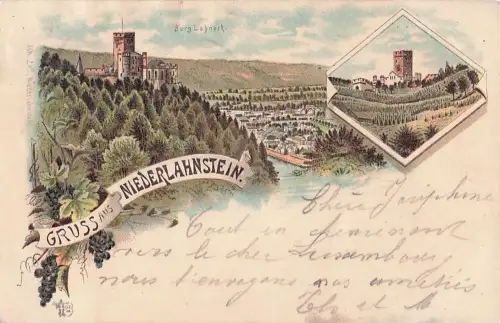 Burg Lahneck.
GRUSS AUS NIEDERLAHNSTEIN.
Chère Joséphine
Tout en cheminant
vers le cher Luxembourg
nous t'envoyons nos amitiés
Th et M